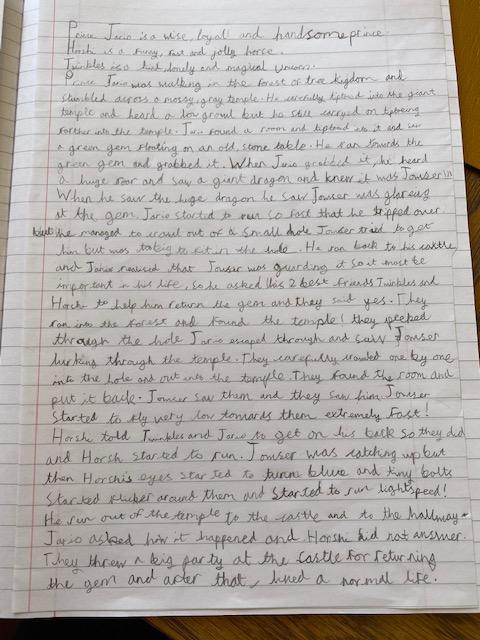 Prince Jario is a wise, loyal and handsome prince.
Horshi is a funny, fast and jolly horse.
Twinkles is a kind, lonely and magical unicorn.
Prince Jario was walking in the forest of tree kigdom and
stumbled across a mossy, gray temple. He carefully tiptoed into the giant
temple and heard a low growl but he still carryed on tiptoeing
further into the temple. Jario found a room and tiptoed into it and saw
a green gem floating on an old, stone table. He ran towards the
green gem and grabbed it. When Jario grabbed it, he heard
a huge roar and saw a giant dragon and knew it was Jowser!!!
When he saw the huge dragon he saw Jowser was glareing
at the gem. Jario started to run so fast that he tripped over
but he managed to crawl out of a small hole Jowser tried to get
him but was to big to fit in the hole. He ran back to his castle
and Jario realised that Jowser was guarding it so it must be
important in his life, so he asked his 2 best friends Twinkles and
Horshi to help him return the gem and they said yes. They
ran into the forest and found the temple! they peeped
through the hole Jario escaped through and saw Jowser
lurking through the temple. They carefully crawled one by one
into the hole and out into the temple. They found the room and
put it back. Jowser saw them and they saw him. Jowser
started to fly very low towards them extremely fast!
Horshi told Twinkles and Jario to get on his back so they did
and Horshi started to run. Jowser was catching up but
then Horshis eyes started to turn blue and tiny bolts
started flicker around them and started to run light speed!
He run out of the temple to the castle and to the hallway.
Jario asked how it happened and Horshi did not answer.
They threw a big party at the castle for returning
the gem and after that, lived a normal life.